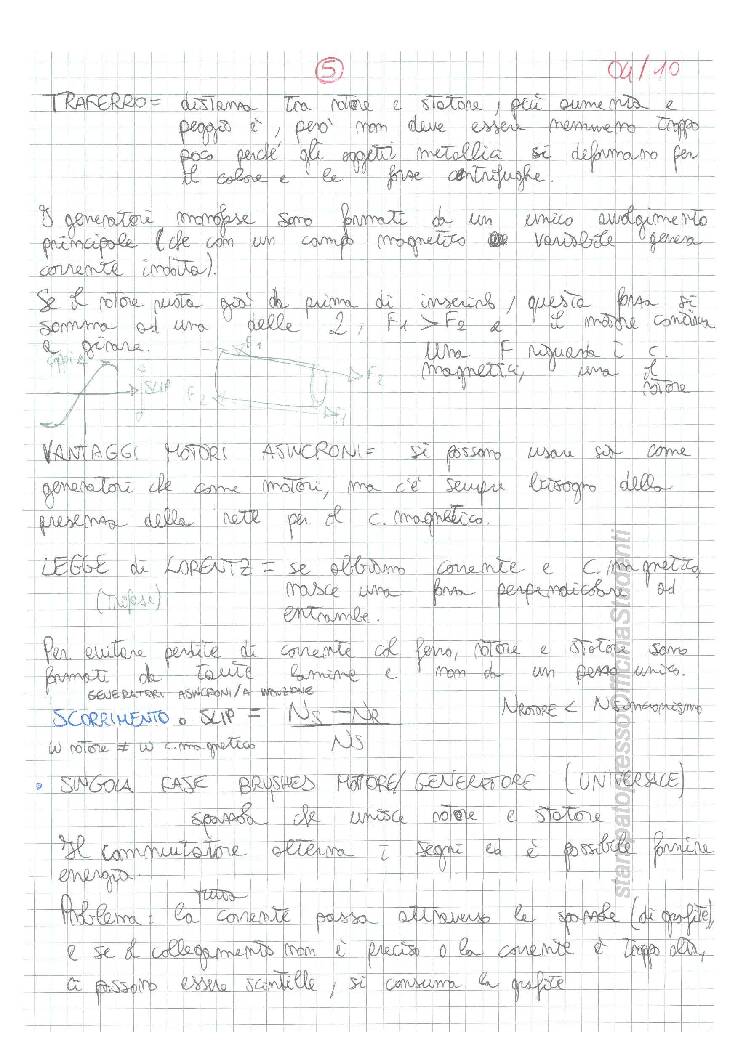 5
04/10
TRAFERRO = distanza tra rotore e statore, più aumenta e
peggio è, però non deve essere nemmeno troppo
poco perché gli oggetti metallici si deformano per
il calore e le forze centrifughe.
I generatori monofase sono formati da un unico avvolgimento
principale (che con un campo magnetico variabile genera
corrente indotta).
Se il rotore ruota già da prima di inserirlo, questa forza si
somma ad una delle 2, F1 > F2 e il motore continua
a girare.
Una F riguarda i c.
magnetici, una il
rotore
Coppia
SLIP
F1
F2
F2
F1
VANTAGGI MOTORI ASINCRONI = si possono usare sia come
generatori che come motori, ma c'è sempre bisogno della
presenza della rete per il c. magnetico.
LEGGE di LORENTZ = se abbiamo corrente e c. magnetico,
nasce una forza perpendicolare ad
entrambe.
(Trifase)
Per evitare perdite di corrente col ferro, rotore e statore sono
formati da tante lamine e non da un pezzo unico.
GENERATORI ASINCRONI/A INDUZIONE
SCORRIMENTO o SLIP = NS - NR / NS
NROTORE < NSINCRONISMO
ω rotore ≠ ω c. magnetico
• SINGOLA FASE BRUSHES MOTORE/GENERATORE (UNIVERSALE)
spazzola che unisce rotore e statore
Il commutatore alterna i segni ed è possibile fornire
energia.
Problema: la corrente passa attraverso le spazzole (di grafite),
e se il collegamento non è preciso o la corrente è troppo alta,
ci possono essere scintille, si consuma la grafite
stampato presso Officina Studenti